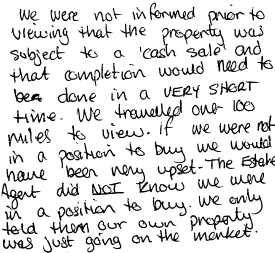 We were not informed prior to
viewing that the property was
subject to a 'cash sale' and
that completion would need to
be done in a VERY SHORT
time. We travelled over 100
miles to view. If we were not
in a position to buy we would
have been very upset. The Estate
Agent did NOT know we were
in a position to buy. We only
told them our own property
was just going on the market.